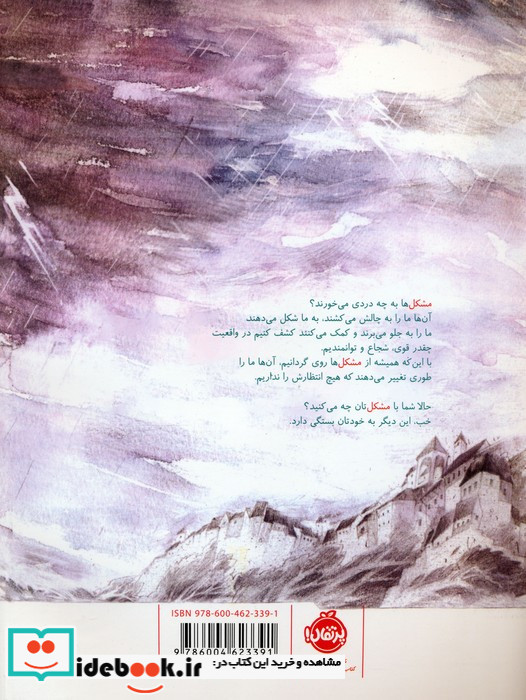 مشکل‌ها به چه دردی می‌خورند؟
آن‌ها ما را به چالش می‌کشند، به ما شکل می‌دهند
ما را به جلو می‌برند و کمک می‌کنند کشف کنیم در واقعیت
چقدر قوی، شجاع و توانمندیم.
با این‌که همیشه از مشکل‌ها روی گردانیم، آن‌ها ما را
طوری تغییر می‌دهند که هیچ انتظارش را نداریم.
حالا شما با مشکل‌تان چه می‌کنید؟
خب، این دیگر به خودتان بستگی دارد.
ISBN 978-600-462-339-1
9786004623391
پرتقال!
idebook.ir
مشاهده و خرید این کتاب در: